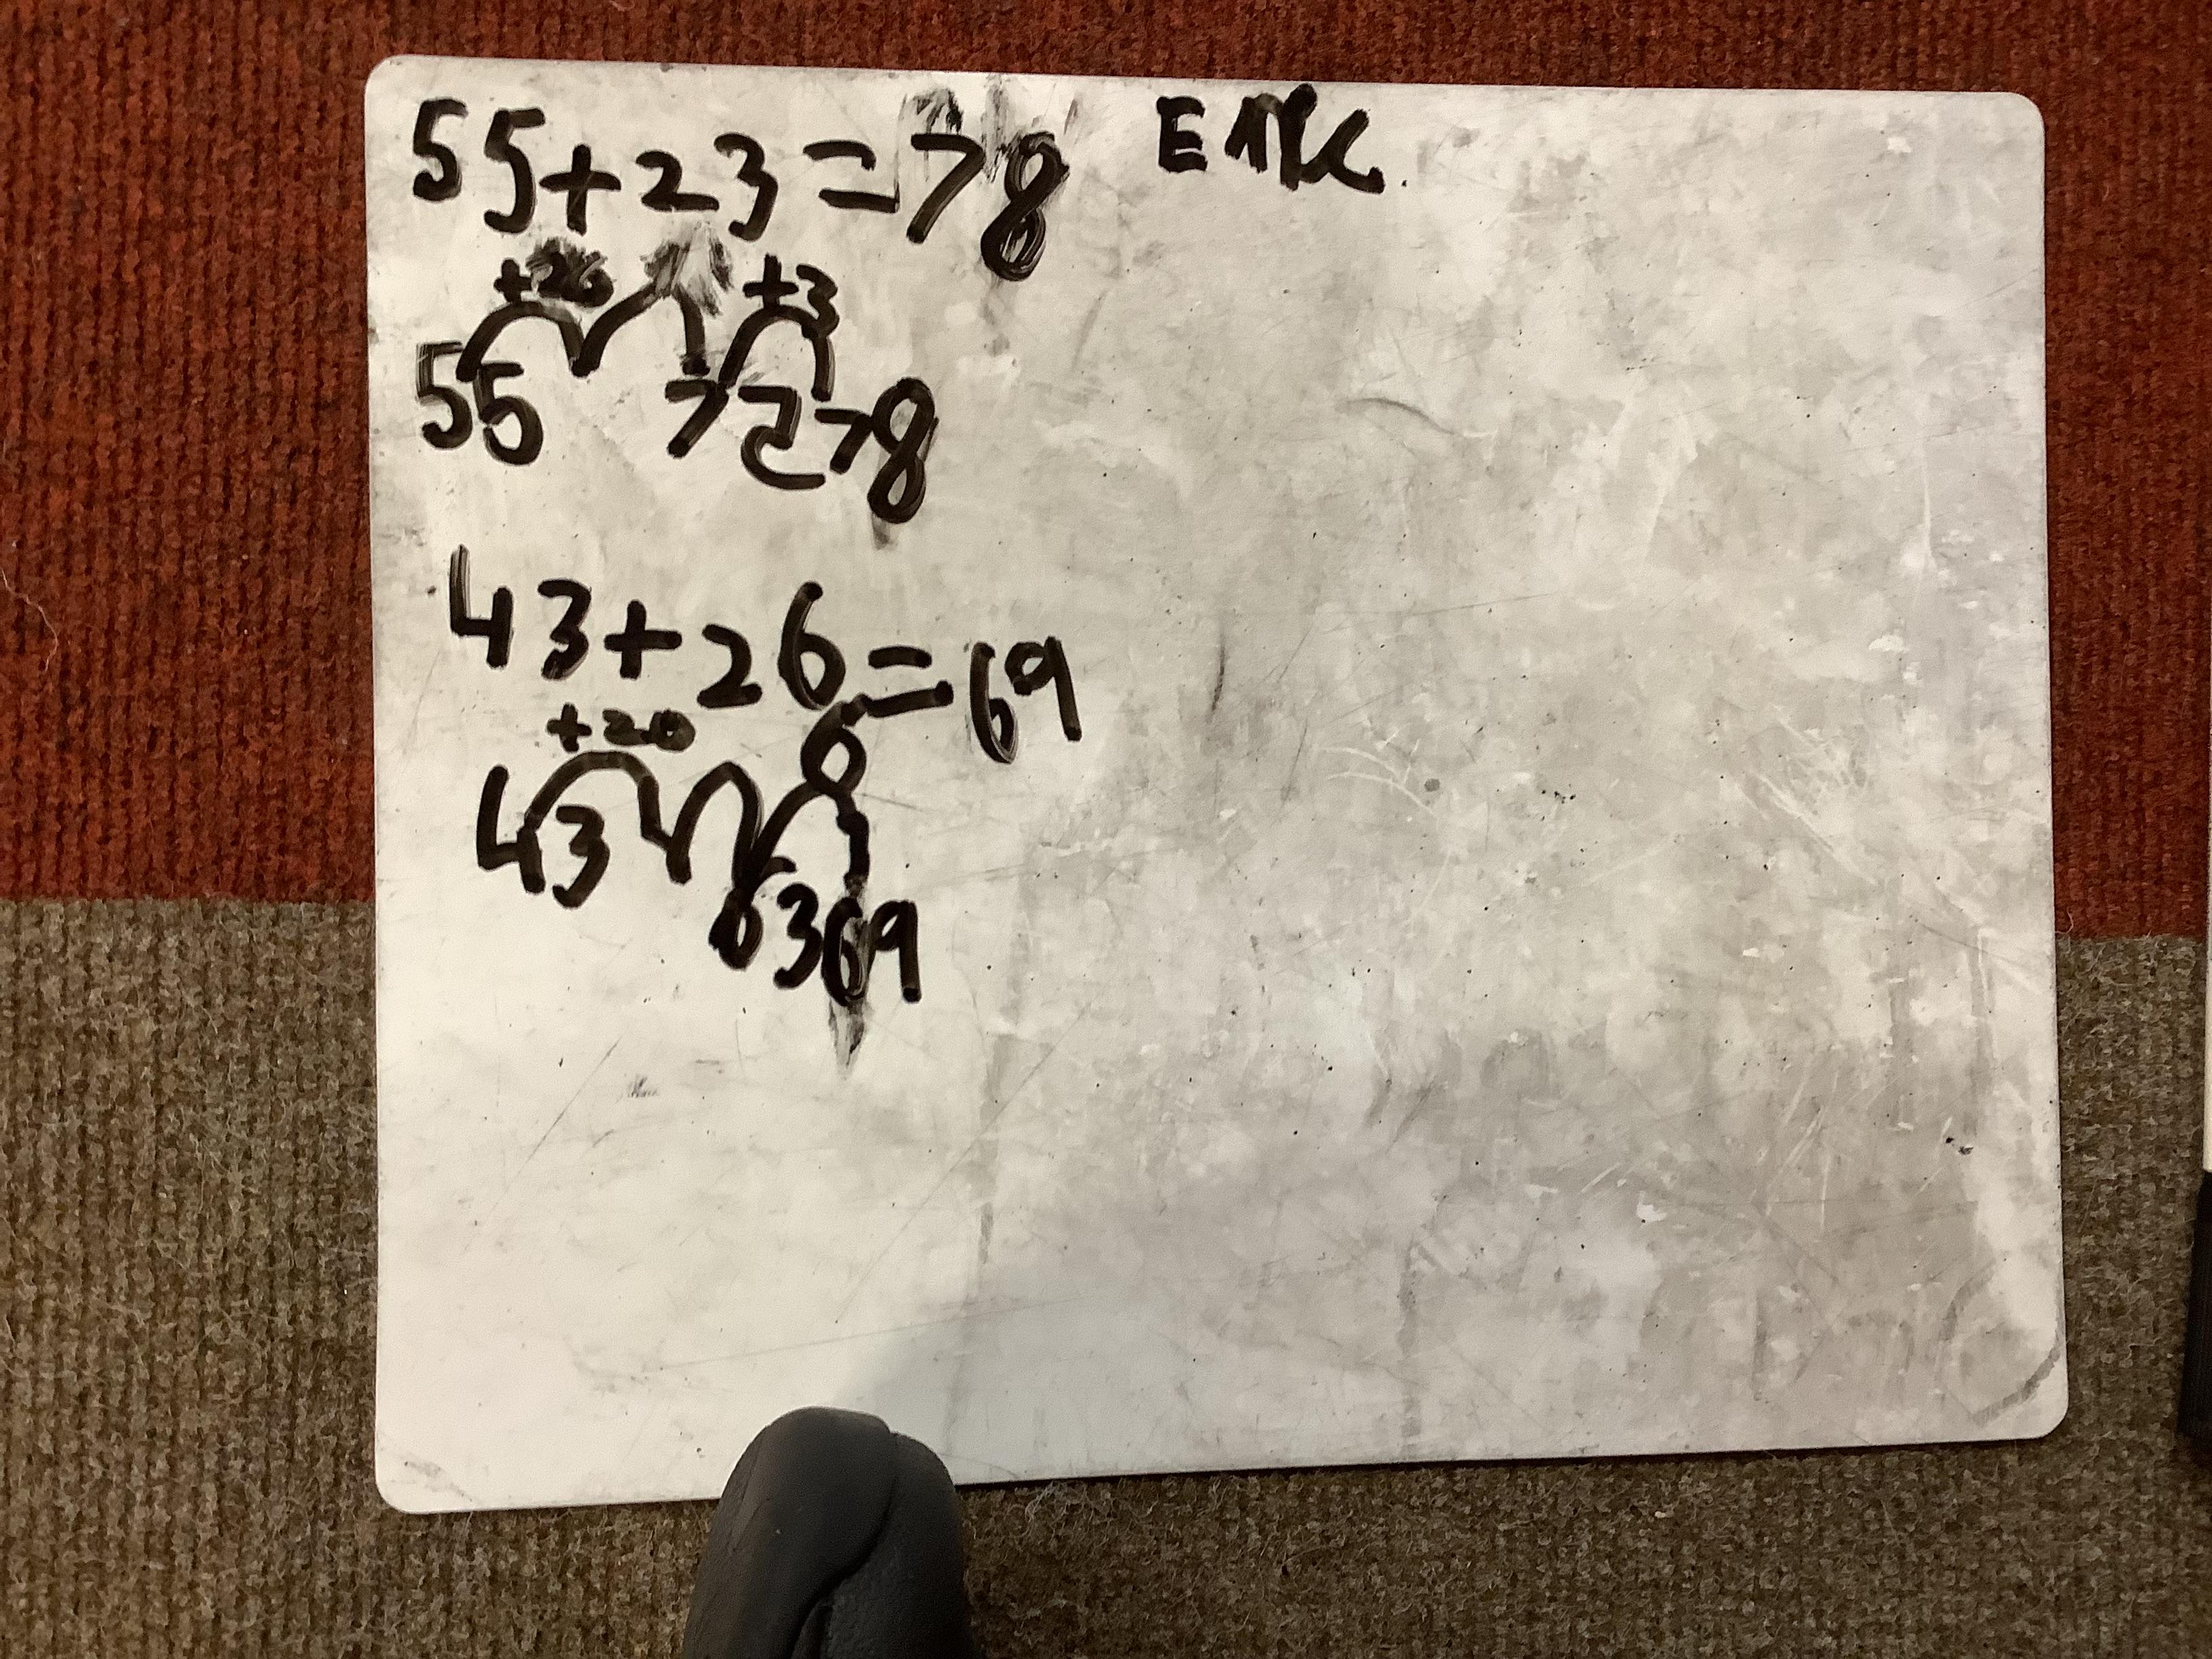 55+23=78
+20 +3
55 75 78
43+26=69
+20 6
43 63 69